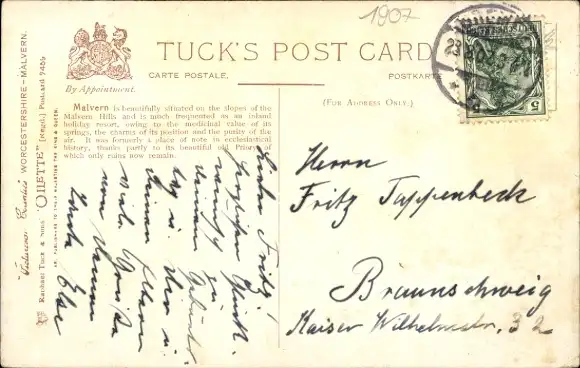 1907
TUCK'S POST CARD
CARTE POSTALE.
POSTKARTE
By Appointment.
(FOR ADDRESS ONLY.)
Malvern is beautifully situated on the slopes of the
Malvern Hills and is much frequented as an inland
holiday resort, owing to the medicinal value of its
springs, the charms of its position and the purity of the
air. It was formerly a place of note in ecclesiastical
history, thanks partly to its beautiful old Priory, of
which only ruins now remain.
"Picturesque Counties" WORCESTERSHIRE – MALVERN.
RAPHAEL TUCK & SONS' "OILETTE" [REGD.] POSTCARD 9486
Lieber Fritz!
herzlichen Glück-
wunsch zu
deinem Geburts-
tag u. dir u.
deinen Eltern
viele Grüße
von deiner
Tante Else
Herrn
Fritz Tappenbeck
Braunschweig
Kaiser Wilhelmstr. 32
5